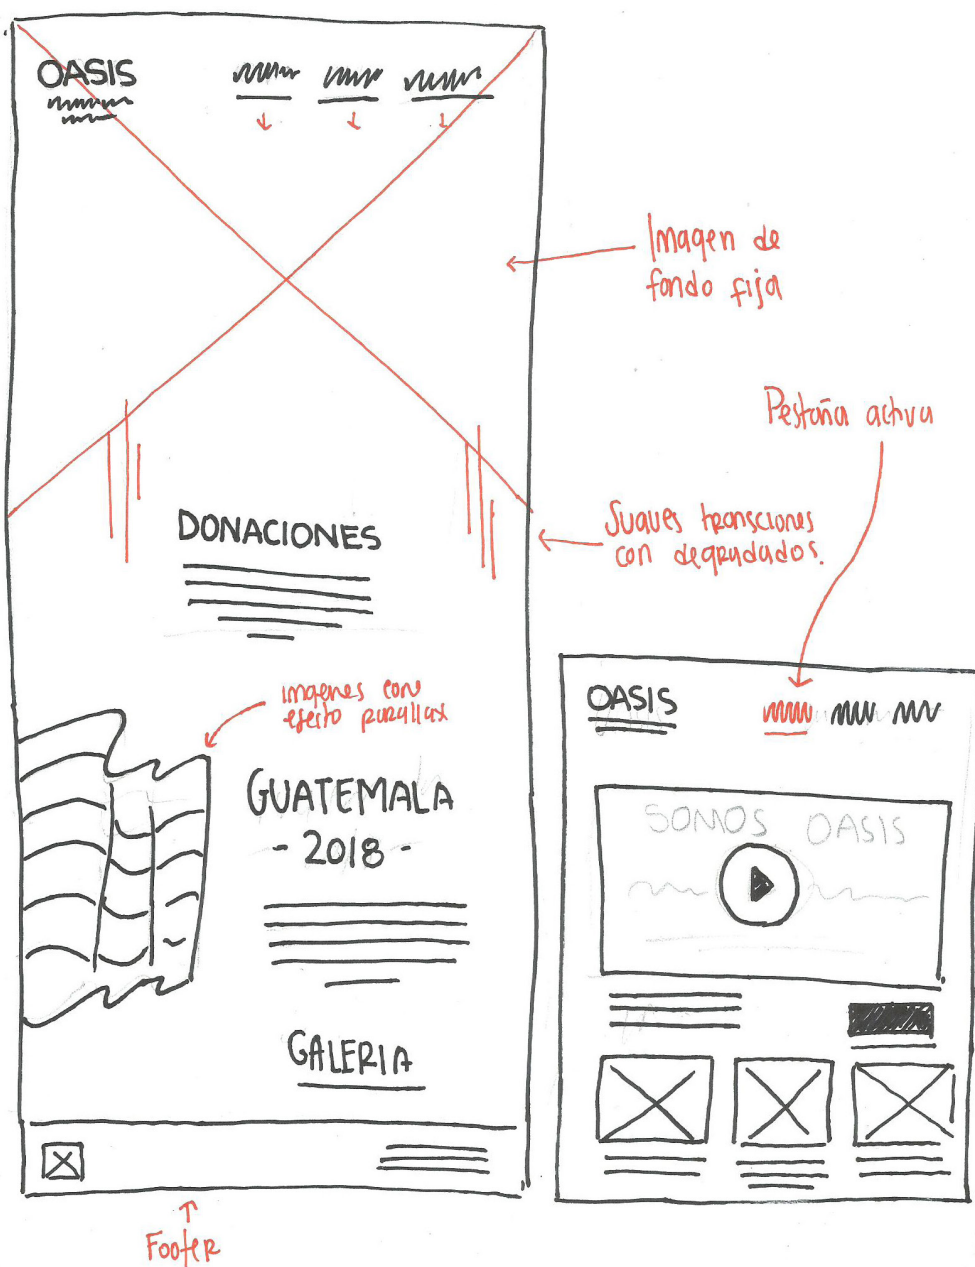 OASIS
Imagen de
fondo fija
Pestaña activa
DONACIONES
Suaves transciones
con degradados.
imagenes con
efecto parallax
GUATEMALA
- 2018 -
GALERIA
Footer
OASIS
SOMOS OASIS